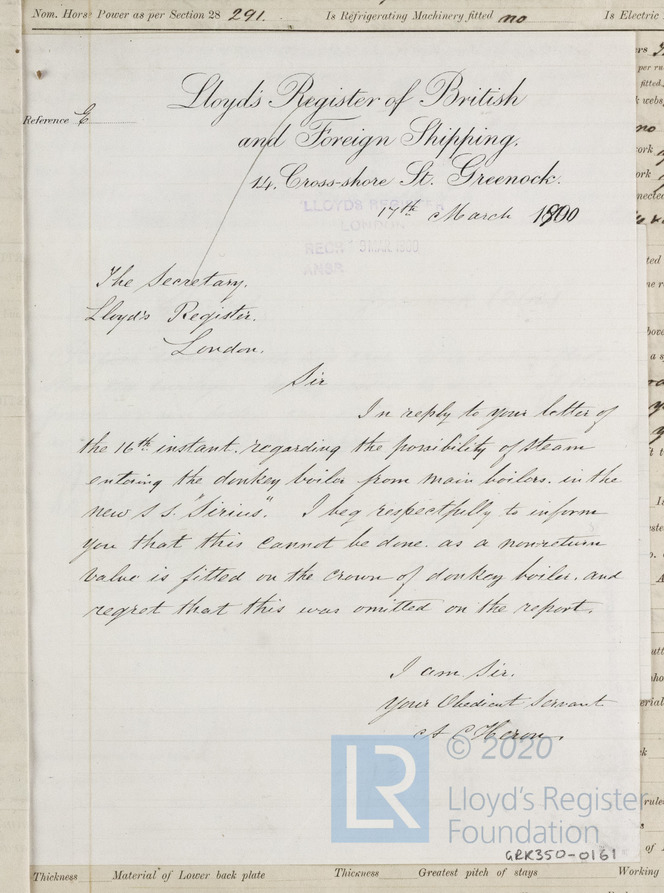 Nom. Horse Power as per Section 28 291. Is Refrigerating Machinery fitted no Is Electric
Lloyd's Register of British
and Foreign Shipping.
Reference E
14, Cross-shore St. Greenock.
17th March 1900
LLOYD'S REGISTER
LONDON
RECD 19 MAR 1900
ANSR
The Secretary.
Lloyd's Register.
London.
Sir
In reply to your letter of
the 16th instant. regarding the possibility of steam
entering the donkey boiler from main boilers. in the
new S S. "Sirius". I beg respectfully to inform
you that this cannot be done. as a nonreturn
valve is fitted on the crown of donkey boiler. and
regret that this was omitted on the report.
I am Sir.
Your Obedient Servant
A C Heron.
© 2020
LR
Lloyd's Register
Foundation
GRK350-0161
Thickness Material of Lower back plate Thickness Greatest pitch of stays Working